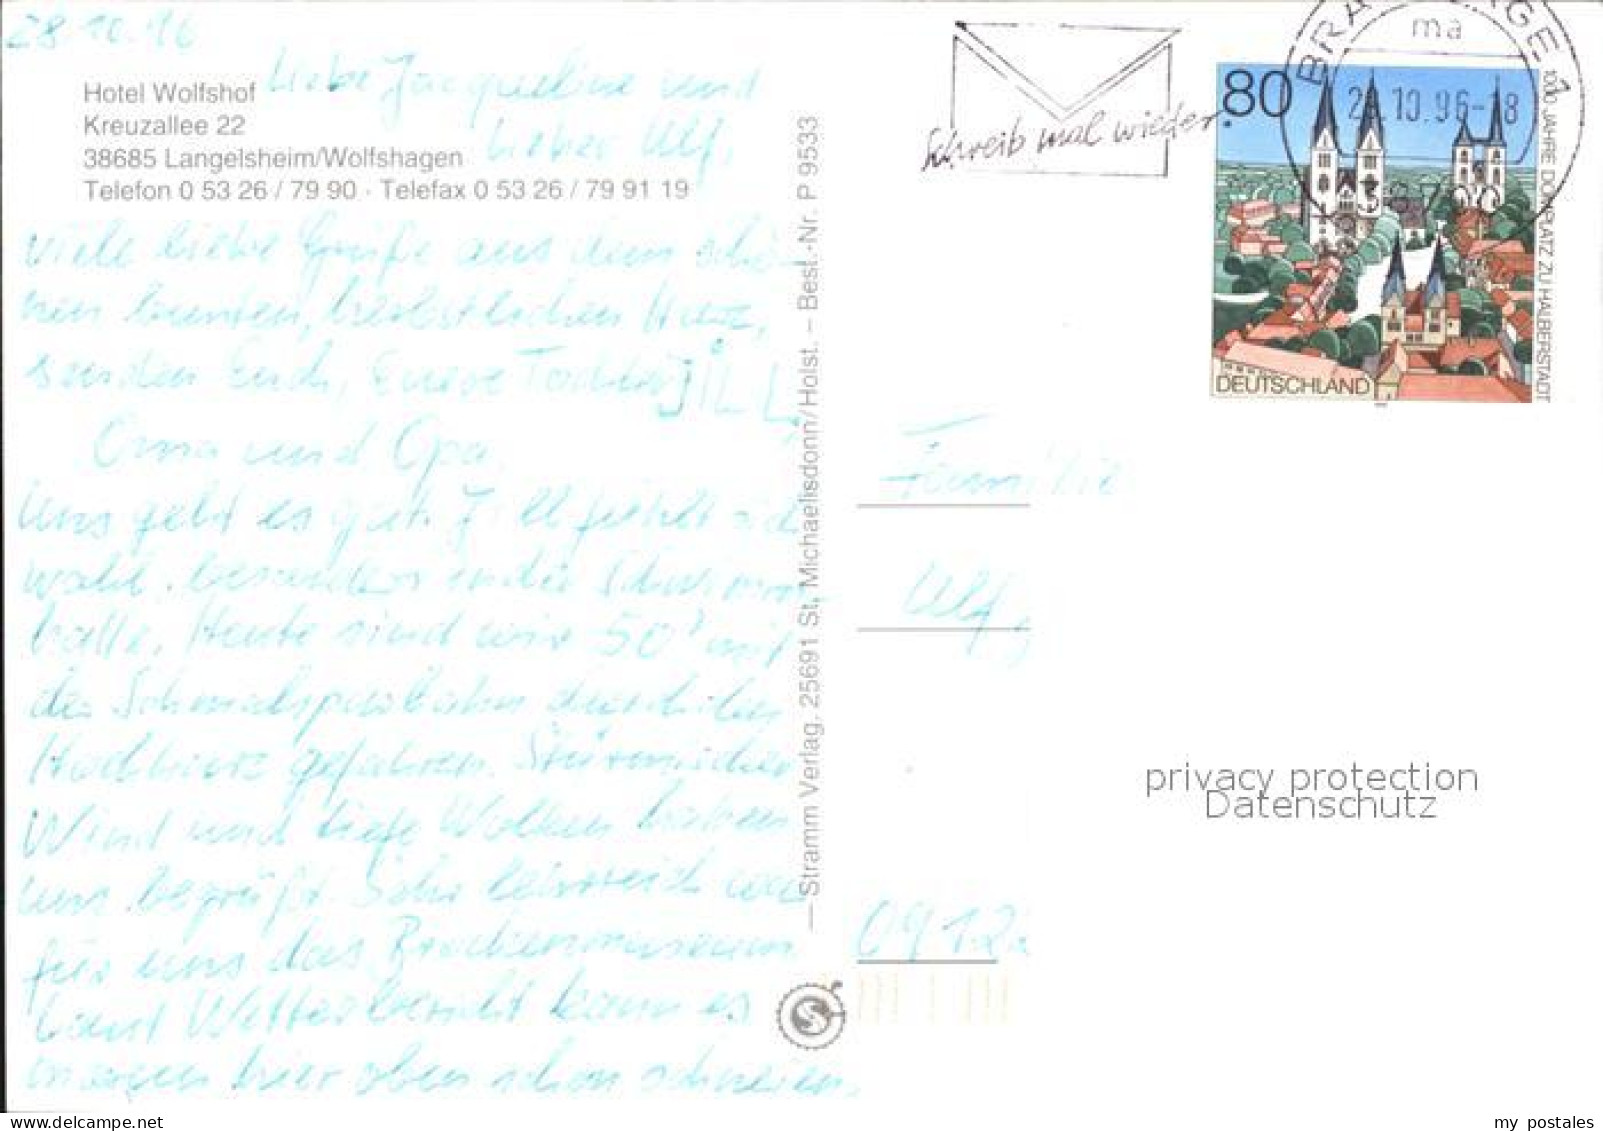 28.10.96
Liebe Jacqueline und
Lieber Ulf,
Hotel Wolfshof
Kreuzallee 22
38685 Langelsheim/Wolfshagen
Telefon 0 53 26 / 79 90 · Telefax 0 53 26 / 79 91 19
viele liebe Grüße aus dem schö-
nen bunten, herbstlichen Harz,
senden Euch, Eure Tochter JiLL
Oma und Opa
Uns geht es gut. Jill fühlt sich
wohl, besonders in der Schwimm
halle. Heute sind wir 50' mit
der Schmalspurbahn durch den
Hochharz gefahren. Stürmischer
Wind und tiefe Wolken haben
uns begrüßt. Sehr lehrreich war
für uns das Brockenmuseum
laut Wetterbericht kann es
morgen hier oben schon schneien.
Stramm Verlag, 25691 St. Michaelisdonn/Holst. – Best.-Nr. P 9533
Schreib mal wieder
BRA AGE 1
ma
28.10.96-18
80
1000 JAHRE DOMPLATZ ZU HALBERSTADT
DEUTSCHLAND
Familie
Ulf
0912
privacy protection
Datenschutz
my postales